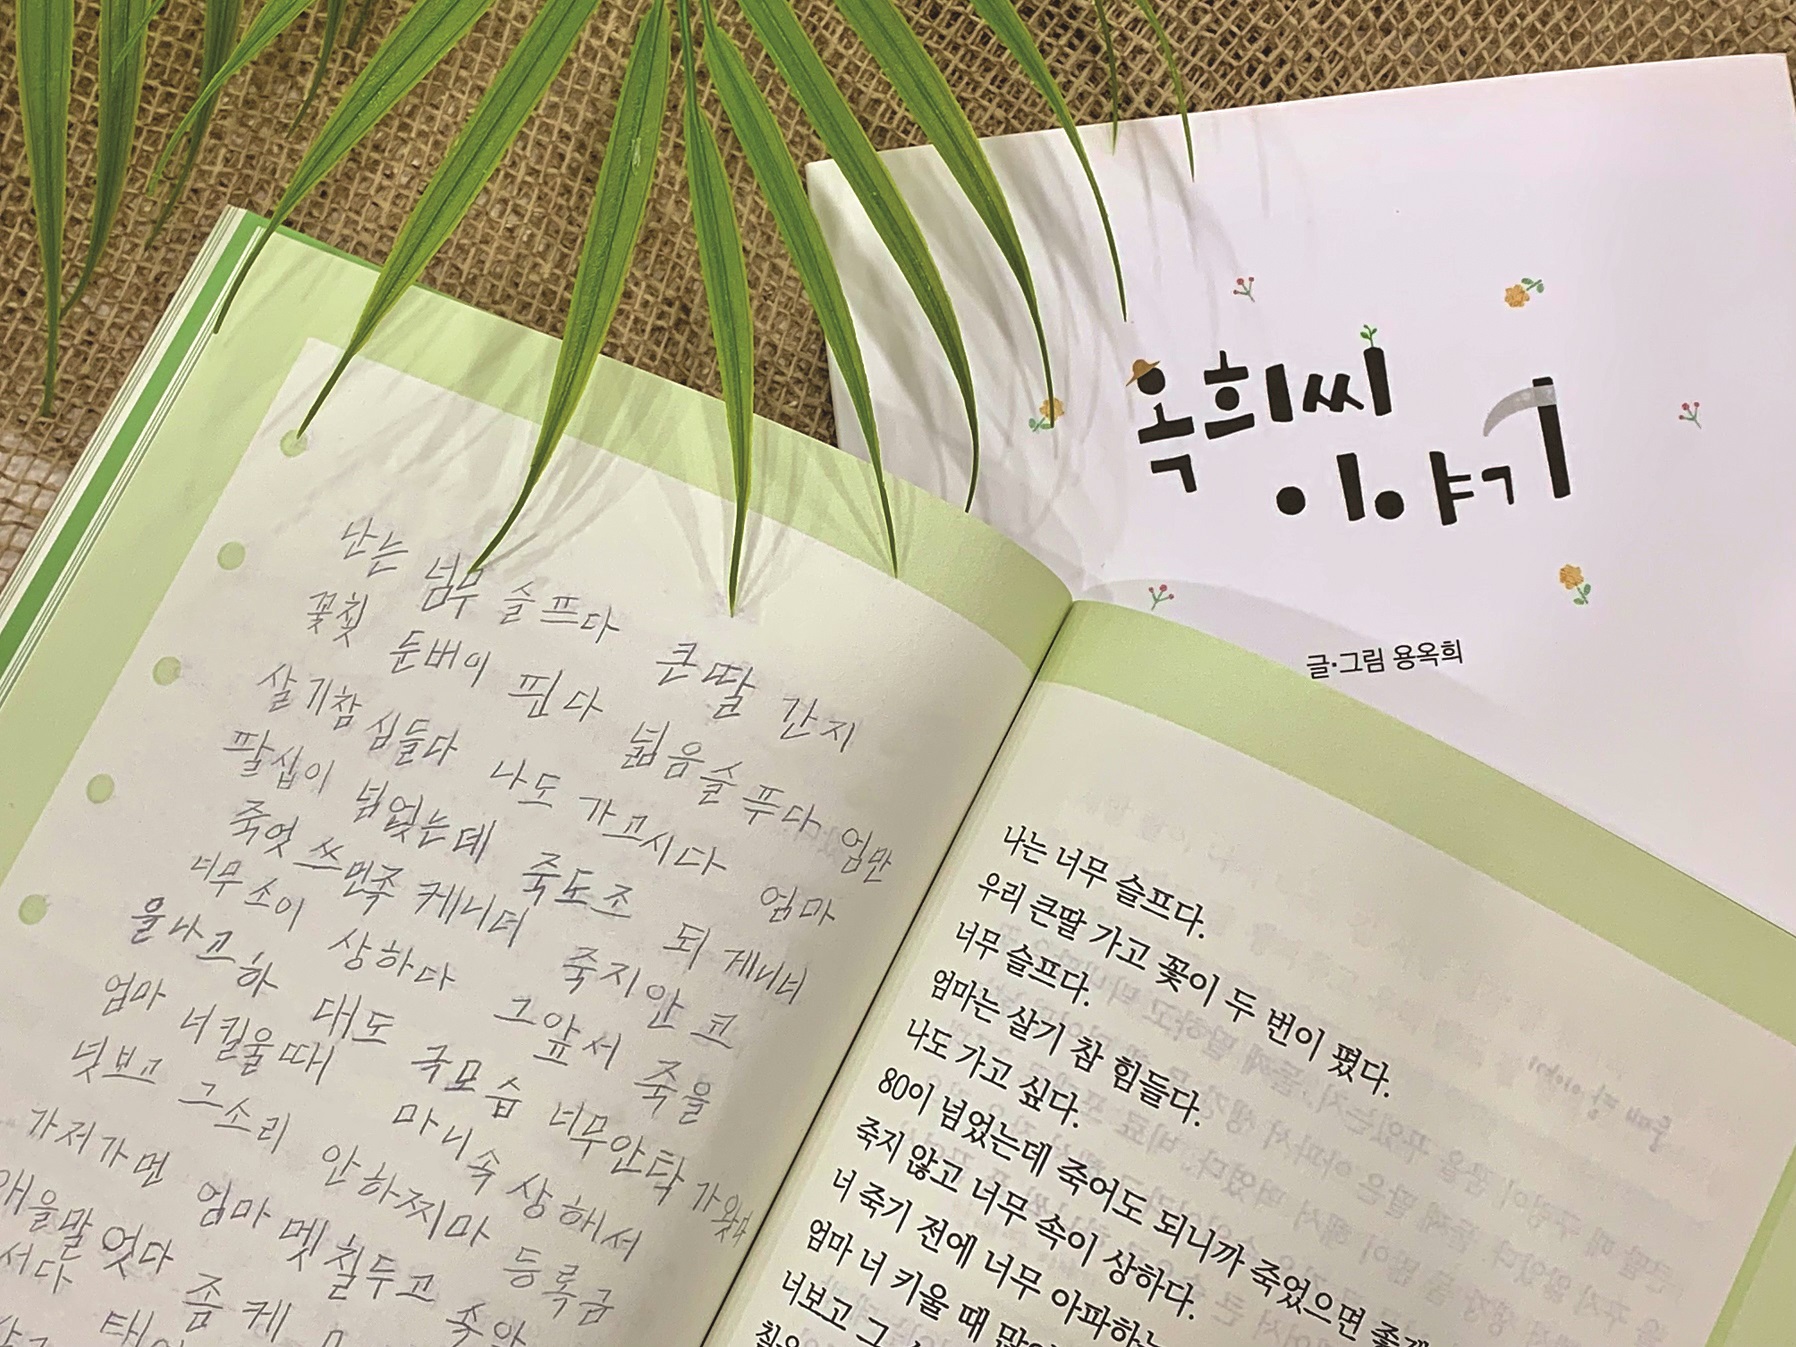 옥희씨
이야기
글·그림 용옥희
난는 넘무 슬프다 큰딸 간지
꽃칯 둔버이 핀다 넓음슬푸다 엄만
살기참 심들다 나도 가고시다 엄마
팔십이 넘었는데 죽도조 되게니너
죽엇쓰면족케니더 죽지안코
너무 소이 상하다 그앞서 죽을
울나고하 대도 국모습 너무안탁가왓다
엄마 너킬울때 마니속상해서
넛보고 그소리 안하찌마 등록금
가저가면 엄마 멧칠두고 속
애울말엇다 좀케
서다
나는 너무 슬프다.
우리 큰딸 가고 꽃이 두 번이 폈다.
너무 슬프다.
엄마는 살기 참 힘들다.
나도 가고 싶다.
80이 넘었는데 죽어도 되니까 죽었으면 좋겠
죽지 않고 너무 속이 상하다.
너 죽기 전에 너무 아파하는
엄마 너 키울 때 많이
너보고 그